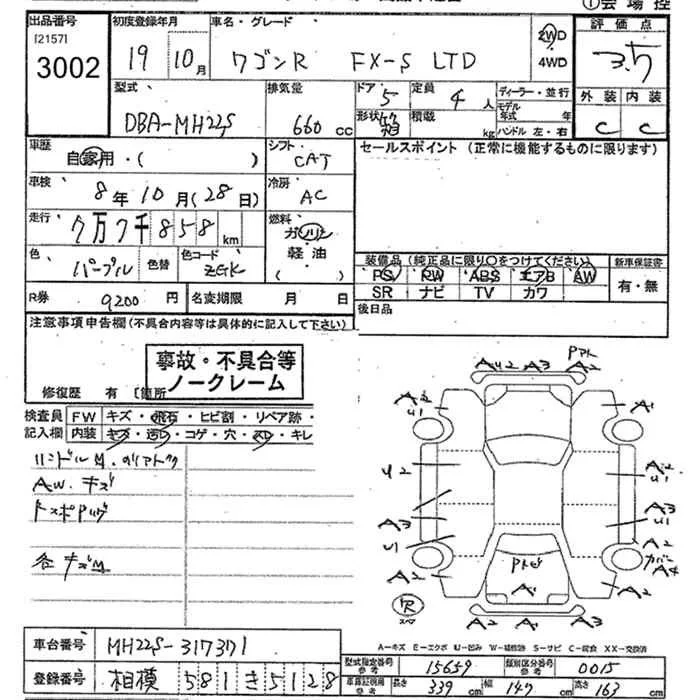 出品番号 初度登録年月 車名・グレード 評価点
[2157] 3002 19 10月 ワゴンR FX-S LTD 2WD 4WD 3.5
型式 排気量 ドア 5 定員 4人 ディーラー・並行 外装 内装
DBA-MH22S 660cc 形状 積載 kg モデル年式 年 ハンドル 左・右 C C
車歴 シフト セールスポイント(正常に機能するものに限ります)
自家用・( ) CAT
車検 8年10月(28日) 冷房 AC
走行 7万7千858km 燃料 ガソリン
軽油
( )
色 パープル 色替 色コード ZGK
装備品(純正品に限り○をつけてください) 新車保証書
PS PW ABS エアB AW 有・無
SR ナビ TV カワ
R券 9200円 名変期限 月 日 後日品
注意事項申告欄(不具合内容等は具体的に記入して下さい)
事故・不具合等
ノークレーム
修復歴 有 [箇所
検査員 FW キズ・飛石・ヒビ割・リペア跡・
記入欄 内装 キズ・汚レ・コゲ・穴・スレ・キレ
AW.キズ
各キズM
AU2 A3 A2
A2 U1 A1
U2 A2 U1
A3 A3 U1
U1 A2
カバー A4
A2 A2
R スペア
A2 A1 A2
A-キズ E-エクボ U-凹み W-補修跡 S-サビ C-腐食 XX-交換済
車台番号 MH22S-317371
型式指定番号 参考 15659 類別区分番号 参考 0015
登録番号 相模 581 き 5128
車両証明用 参考 長さ 339cm 幅 147cm 高さ 163cm